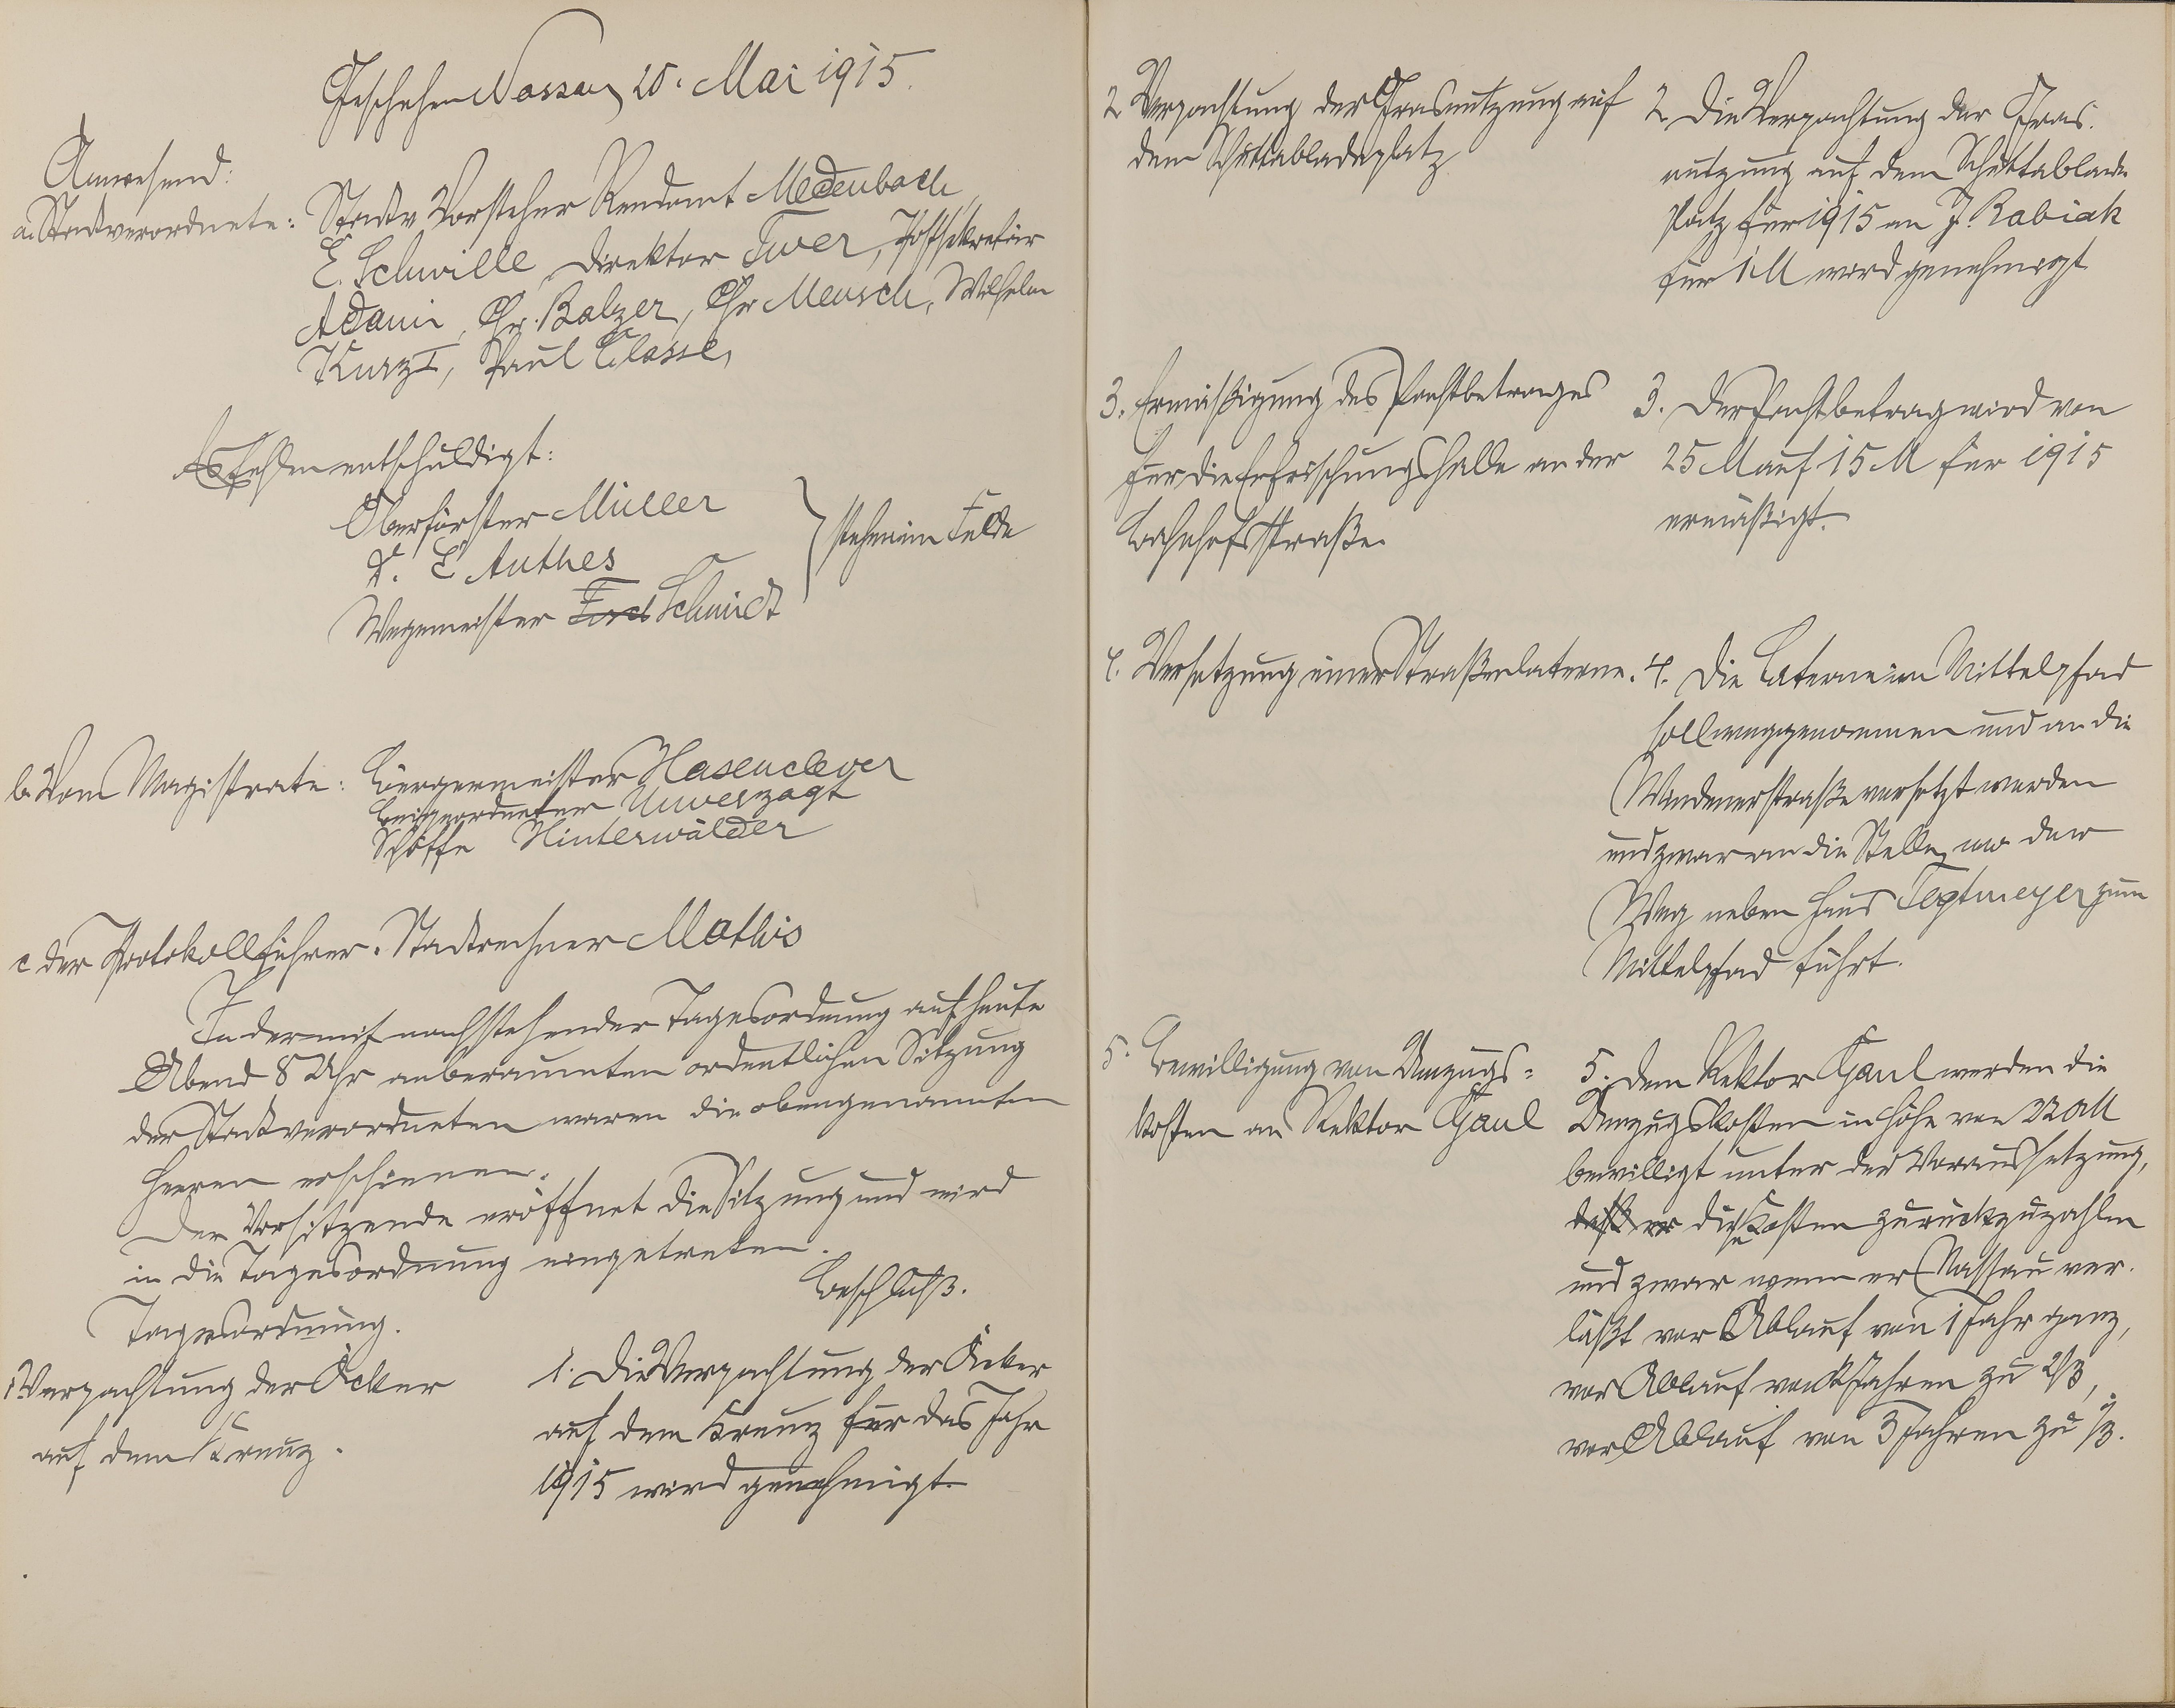 Geschehen Nassau, 20. Mai 1915.
Anwesend:
a. Stadtverordnete: Stadtv Vorsteher Rendant Medenbach,
E. Schwille Direktor Twer, Postsekretär
Adami, Chr. Balzer, Chr Meusch, Wilhelm
Kurz I, Paul Classe,
Es fehlen entschuldigt:
Oberförster Müller
Dr. E. Anthes
Wegemeister Schmidt
stehen im Felde
b. Vom Magistrate: Bürgermeister Hasenclever
Beigeordneter Unverzagt
Schöffe Hinterwälder
c der Protokollführer. Stadtrechner Mathis
In der mit nachstehender Tagesordnung auf heute
Abend 8 Uhr anberaumten ordentlichen Sitzung
der Stadtverordneten waren die obengenannten
Herren erschienen.
Der Vorsitzende eröffnet die Sitzung und wird
in die Tagesordnung eingetreten.
Beschluß.
Tagesordnung.
1 Verpachtung der Äcker
auf dem Kreuz.
1. Die Verpachtung der Äcker
auf dem Kreuz für das Jahr
1915 wird genehmigt.
2 Verpachtung der Grasnutzung auf
dem Schuttabladeplatz
2 Die Verpachtung der Gras-
nutzung auf dem Schuttablade
platz für 1915 an J. Rabiak
für 1 M wird genehmigt
3. Ermäßigung des Pachtbetrages
für die Erfrischungshalle an der
Bahnhofsstraße.
3. Der Pachtbetrag wird von
25 M auf 15 M für 1915
ermäßigt.
4. Versetzung einer Straßenlaterne.
4. Die Laterne im Mittelpfad
soll weggenommen und an die
Windenerstraße versetzt werden
und zwar an die Stelle, wo der
Weg neben Haus Tegtmeyer zum
Mittelpfad führt.
5. Bewilligung von Umzugs-
kosten an Rektor Gaul
5. Dem Rektor Gaul werden die
Umzugskosten in Höhe von M
bewilligt unter der Voraussetzung,
daß er die Kosten zurückzuzahlen
und zwar wenn er Nassau ver-
läßt vor Ablauf von 1 Jahr ganz,
vor Ablauf von 2 Jahren zu 2/3,
vor Ablauf von 3 Jahren zu 1/3.